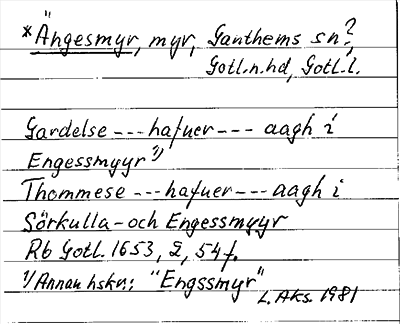 *Ängesmyr, myr, Ganthems sn?,
Gotl.n.hd, Gotl.l.
Gardelse --- hafuer --- aagh i
Engessmyyr 1)
Thommese --- hafuer --- aagh i
Sörkulla- och Engessmyyr
Rb Gotl. 1653, 2, 54 f.
1) Annan hskr: "Engssmyr"
L. Aks. 1981